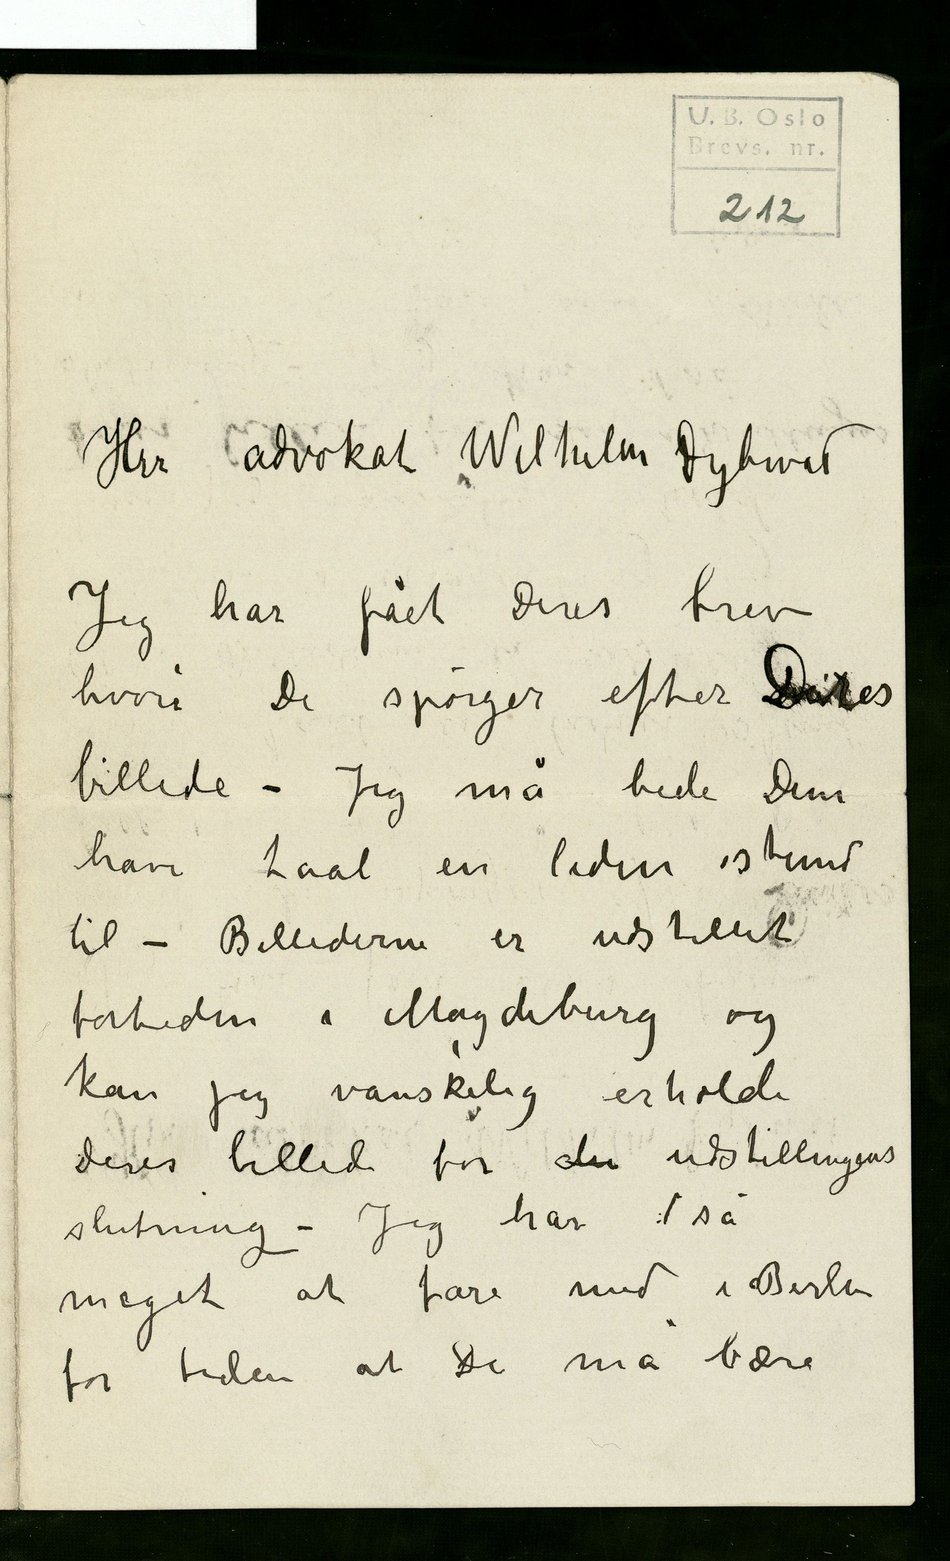 U. B. Oslo
Brevs. nr.
212
Herr advokat Wilhelm Dybwad
Jeg har fået Deres brev
hvori De spörger efter Deres
billede – Jeg må bede Dem
have taal en liden stund
til – Billederne er udstillet
fortiden i Magdeburg og
kan jeg vanskelig erholde
deres billede for den udstillingens
slutning – Jeg har så
meget at fare med i Berlin
for tiden at De må bære